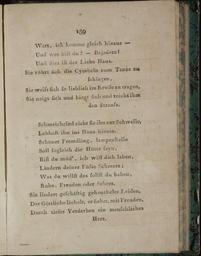 139
Wart, ich komme gleich hinaus —
Und wer bist du? — Bajadere!
Und dies ist der Liebe Haus.
Sie rührt sich die Cymbeln zum Tanze zu
schlagen,
Sie weiß sich so lieblich im Kreise zu tragen,
Sie neigt sich und biegt sich und reicht ihm
den Strauß.
Schmeichelnd zieht sie ihn zur Schwelle,
Lebhaft ihn ins Haus hinein.
Schöner Fremdling, lampenhelle
Soll sogleich die Hütte seyn,
Bist du müd', ich will dich laben,
Lindern deiner Füße Schmerz;
Was du willst das sollst du haben,
Ruhe, Freuden oder Scherz.
Sie lindert geschäftig geheuchelte Leiden,
Der Göttliche lächelt, er siehet, mit Freuden,
Durch tiefes Verderben ein menschliches
Herz.